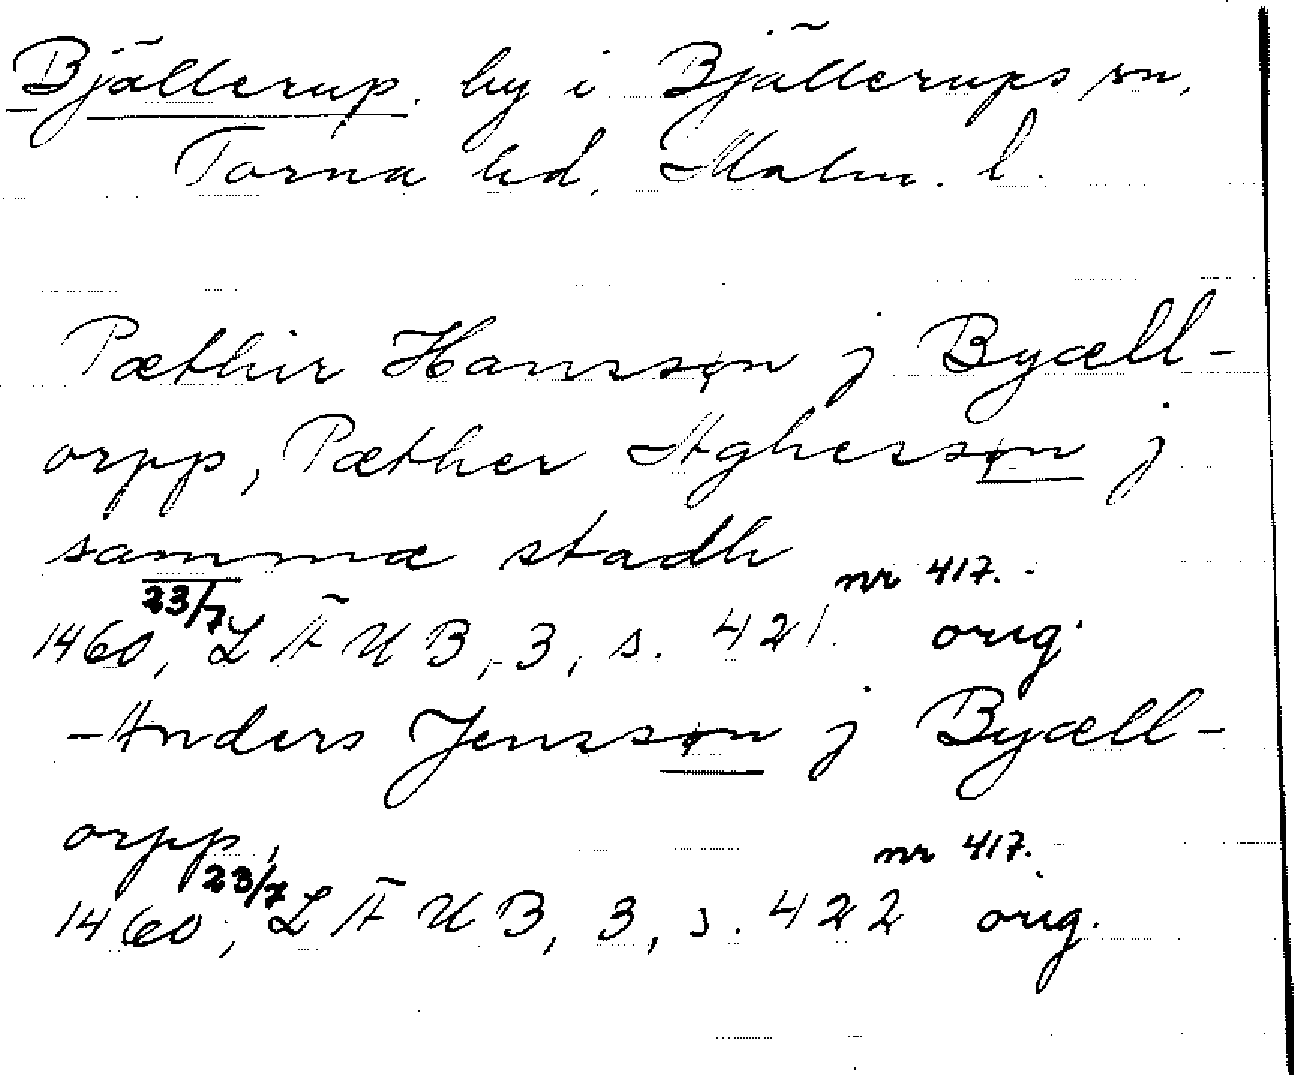 Bjällerup. by i Bjällerups sn,
Torna hd, Malm. l.
Pæthir Hamsøn j Byæll-
orpp, Pæther Aghersøn j
samma stadh
1460, 23/7 LÄUB, 3, s. 421. nr 417. orig.
- Anders Jenssøn j Byæll-
orpp,
1460, 23/7 LÄUB, 3, s. 422 nr 417. orig.